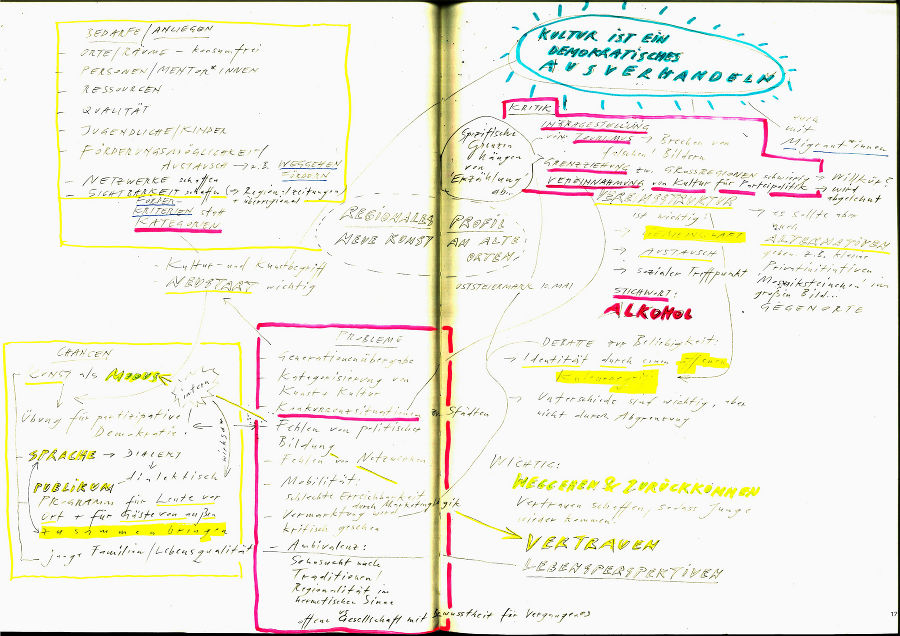 BEDARFE/ANLIEGEN
- ORTE/RÄUME - konsumfrei
- PERSONEN/MENTOR*INNEN
- RESSOURCEN
- QUALITÄT
- JUGENDLICHE/KINDER
- FÖRDERUNGSMÖGLICHKEIT/
AUSTAUSCH → z.B. WEGGEHEN
FÖRDERN
- NETZWERKE schaffen
SICHTBARKEIT schaffen (→ Regionalzeitungen/
+ überregional)
FÖRDER-
KRITERIEN statt
KATEGORIEN
- Kultur- und Kunstbegriff
NEUSTART wichtig
CHANCEN
KUNST als MODUS
intern
wirksam
Übung für partizipative
Demokratie.
- SPRACHE → DIALEKT
dialektisch
PUBLIKUM
PROGRAMM für Leute vor
Ort + für Gäste von außen
zusammenbringen
- junge Familien/Lebensqualität
PROBLEME
- Generationenübergabe
- Kategorisierung von
Kunst + Kultur
- Konkurrenzsituationen zu Städten
- Fehlen von politischer
Bildung
- Fehlen von Netzwerken
- Mobilität:
schlechte Erreichbarkeit
durch Marketinglogik
- Vermarktung wird
kritisch gesehen
- Ambivalenz:
Sehnsucht nach
Traditionen/
Regionalität im
hermetischen Sinne
vs
offene Gesellschaft mit Bewusstheit für Vergangenes
REGIONALES PROFIL
NEUE KUNST AN ALTEN
ORTEN;
OSTSTEIERMARK 10. MAI
KULTUR IST EIN
DEMOKRATISCHES
AUSVERHANDELN
auch
mit
Migrant*innen
KRITIK
Spezifische
Grenzen
hängen
von
Erzählung
ab.
INFRAGESTELLUNG
von TOURISMUS → Brechen von
falschen Bildern
GRENZZIEHUNG zu GROSSREGIONEN schwierig → Willkür?
VEREINNAHMUNG von Kultur für Parteipolitik → wird
abgelehnt
VEREINSSTRUKTUR
ist wichtig!
→ GEMEINSCHAFT
→ AUSTAUSCH
→ sozialer Treffpunkt
→ es sollte aber
auch
ALTERNATIVEN
geben z.B. kleine
Privatinitiativen
Mosaiksteinchen im
großen Bild...
GEGENORTE
STICHWORT:
ALKOHOL
DEBATE zur Beliebigkeit:
→ Identität durch einen offenen
Kulturbegriff
→ Unterschiede sind wichtig, aber
nicht durch Abgrenzung
WICHTIG:
WEGGEHEN & ZURÜCKKOMMEN
Vertrauen schaffen, sodass Junge
wieder kommen.
VERTRAUEN
LEBENSPERSPEKTIVEN
17